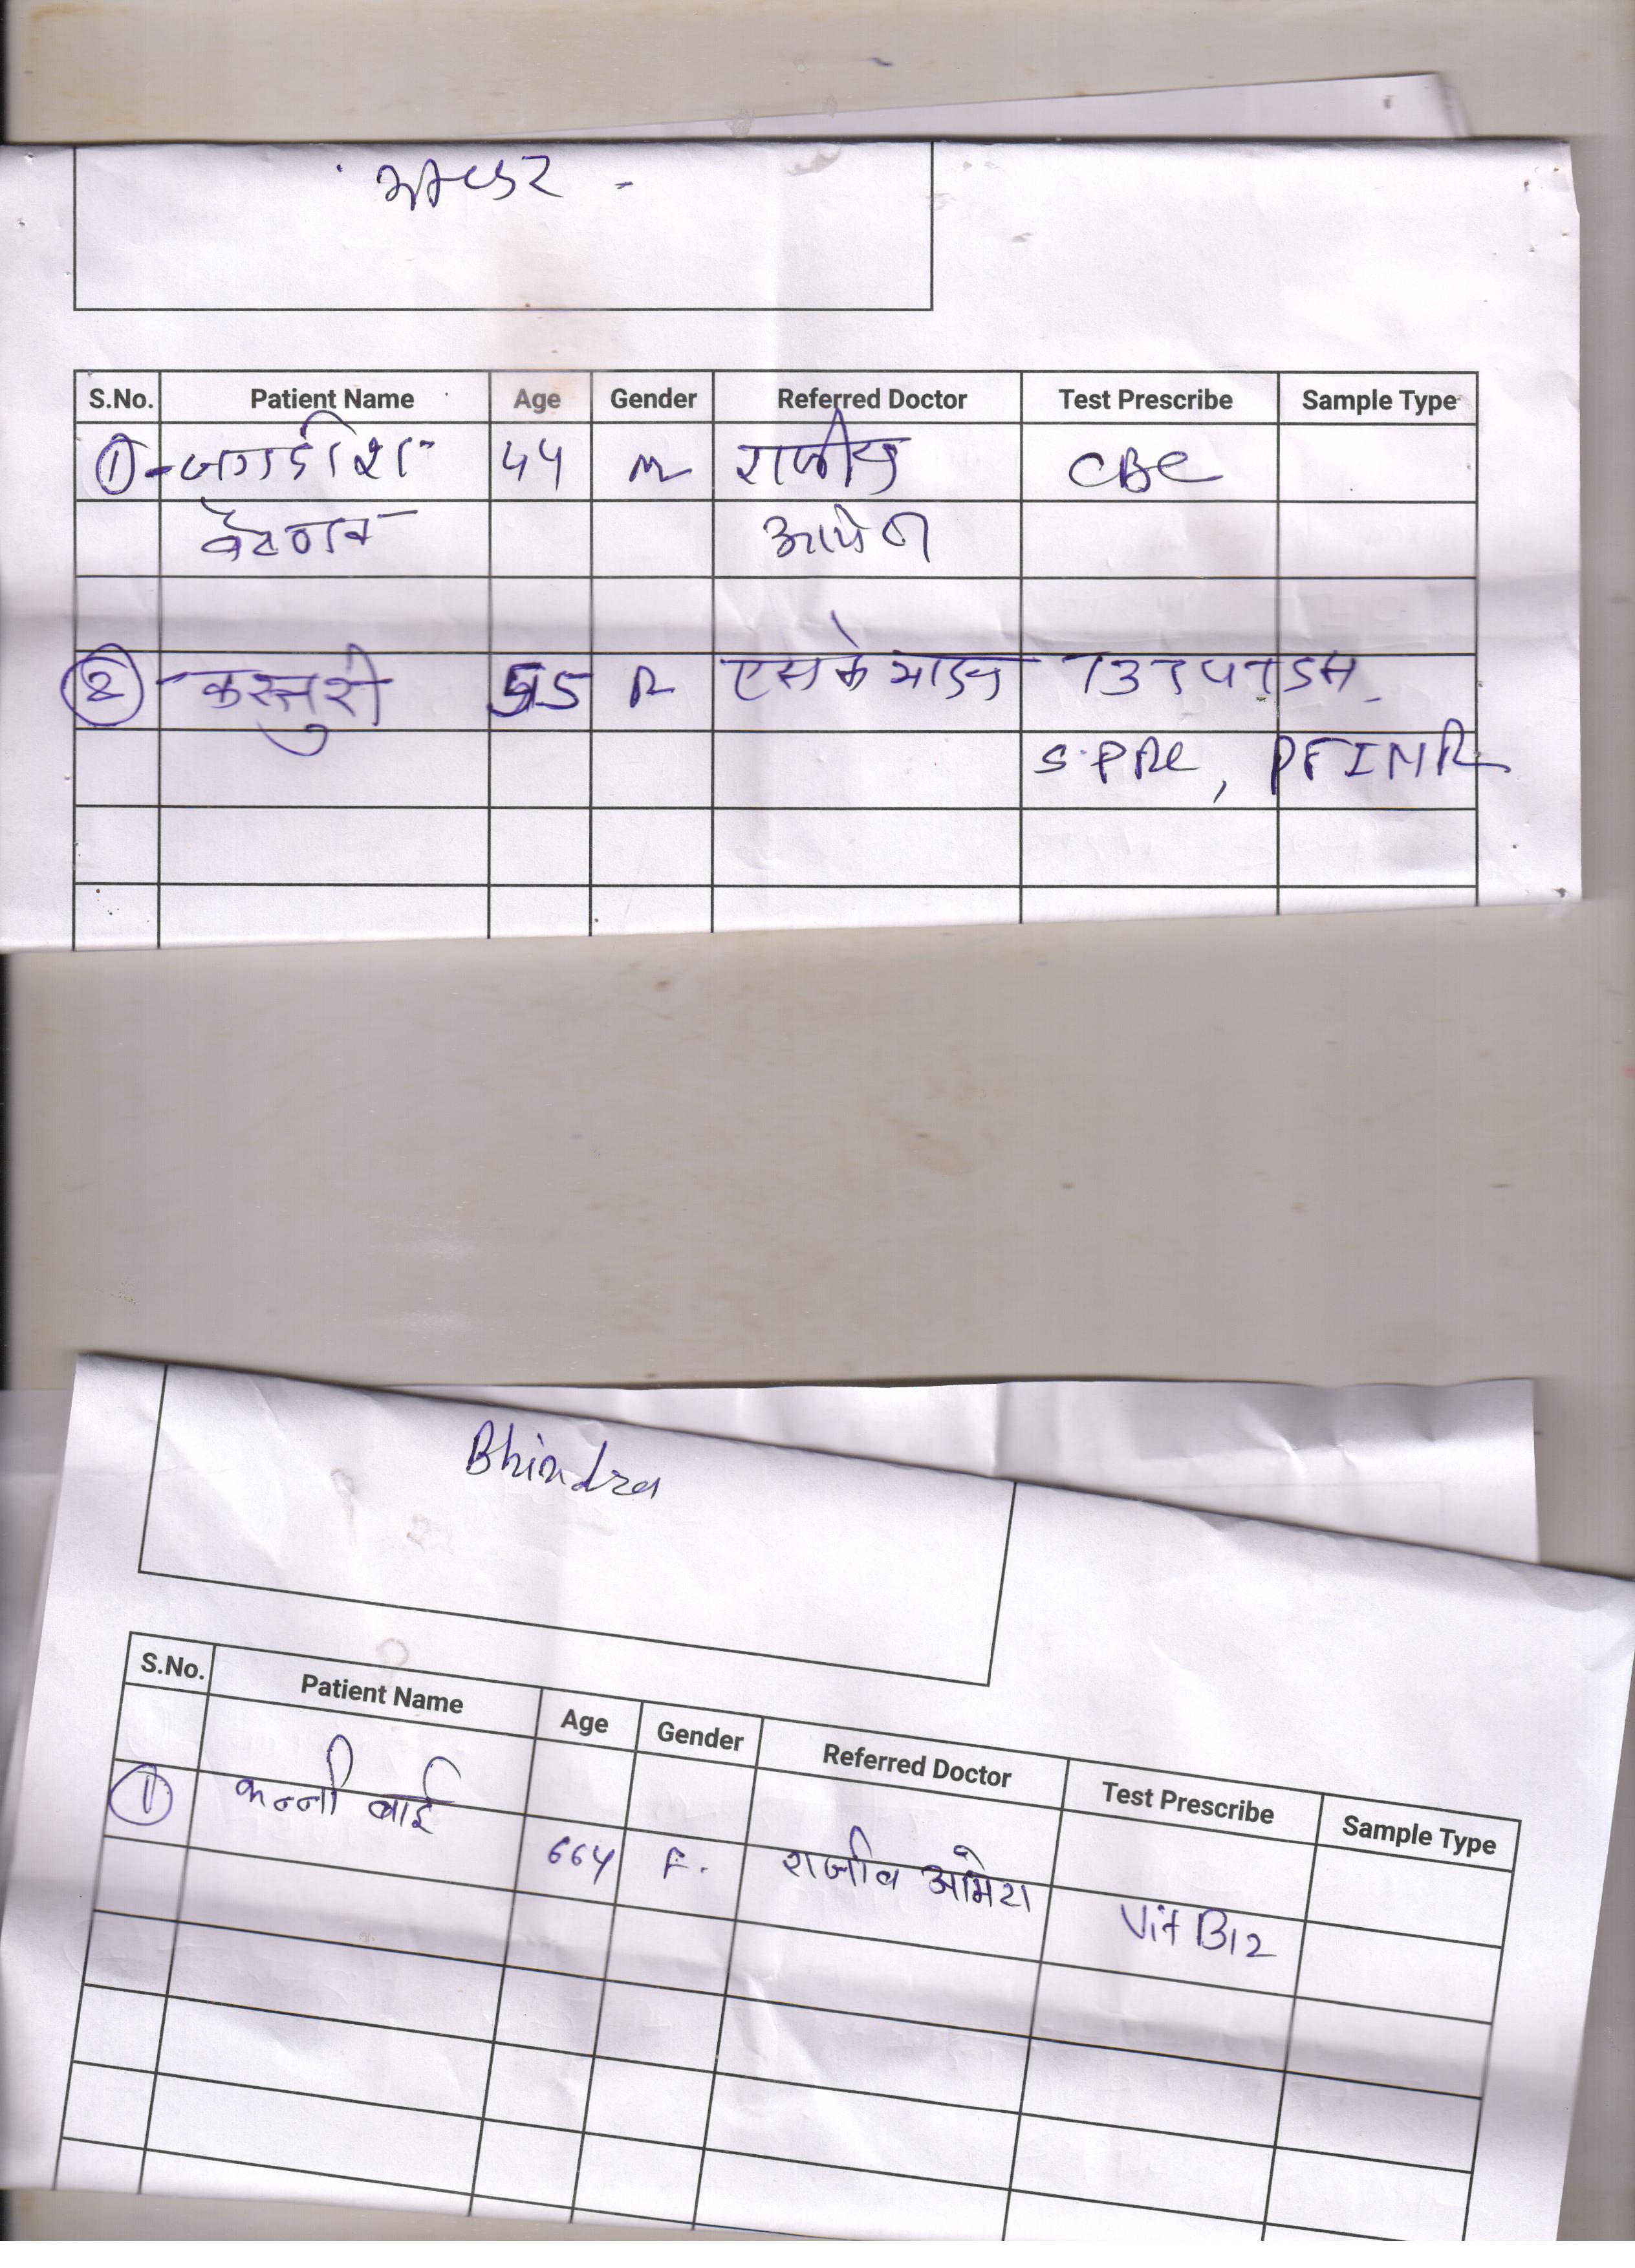 S.No. Patient Name Age Gender Referred Doctor Test Prescribe Sample Type
① - जगदीश 44 m राजीव CBC
वैष्णव
② - कस्तुरी 55 एस के माडन T3T4TSH
PTINR
Bhindra
S.No. Patient Name Age Gender Referred Doctor Test Prescribe Sample Type
① कन्नी बाई 66y F. राजीव अमेटा Vit B12